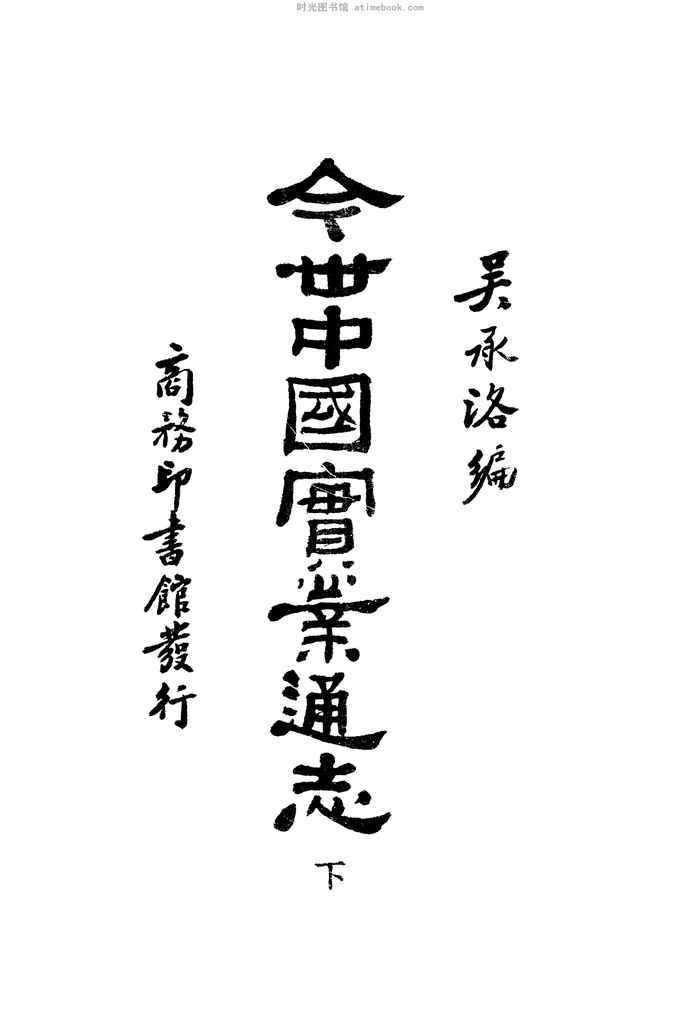 时光图书馆 atimebook.com
吴承洛編
今世中國實業通志
下
商務印書館發行